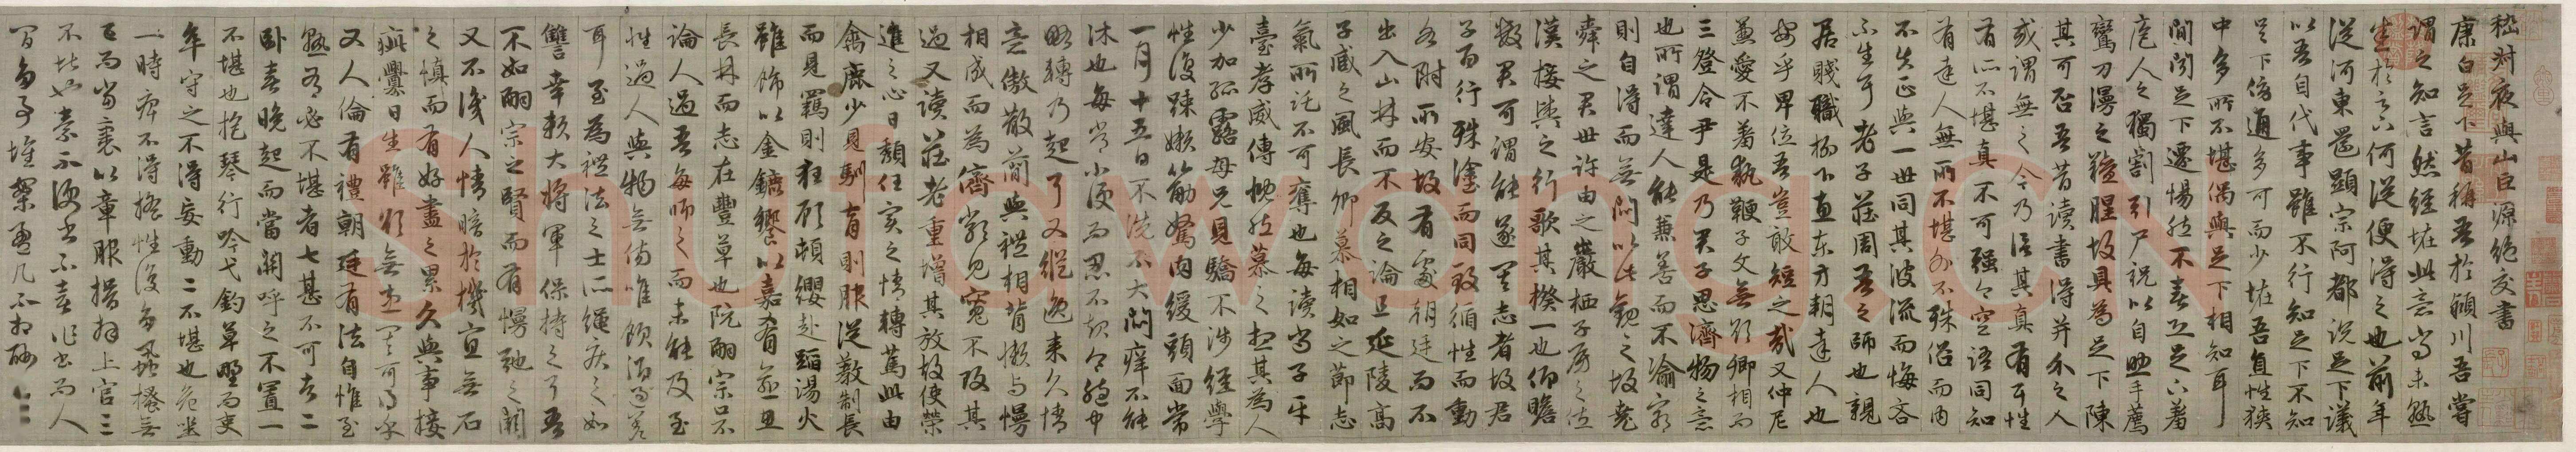 嵇叔夜與山巨源絕交書
康白足下昔稱吾於潁川吾嘗
謂之知言然經怪此意尚未熟
生於言何從便得之也前年
從河東還顯宗阿都說足下議
以吾自代事雖不行知足下不知
足下傍通多可而少怪吾直性狹
中多所不堪偶與足下相知耳
間聞足下遷惕然不喜恐足下羞
庖人之獨割引尸祝以自助手薦
鸞刀漫之羶腥故具為足下陳
其可否吾昔讀書得并介之人
或謂無之今乃信其真有耳性
有所不堪真不可強今空語同知
有達人無所不堪外不殊俗而內
不失正與一世同其波流而悔吝
不生耳老子莊周吾之師也親
居賤職柳下惠東方朔達人也
安乎卑位吾豈敢短之哉又仲尼
兼愛不羞執鞭子文無欲卿相而
三登令尹是乃君子思濟物之意
也所謂達人能兼善而不渝窮
則自得而無悶以此觀之故堯
舜之君世許由之巖栖子房之佐
漢接輿之行歌其揆一也仰瞻
數君可謂能遂其志者故君
子百行殊塗而同致循性而動
各附所安故有處朝廷而不
出入山林而不反之論且延陵高
子臧之風長卿慕相如之節志
氣所託不可奪也每讀尚子平
臺孝威傳慨然慕之想其為人
少加孤露母兄見驕不涉經學
性復疎嬾筋駑肉緩頭面常
一月十五日不洗不大悶癢不能
沐也每常小便而忍不起令胞中
略轉乃起耳又縱逸來久情
意傲散簡與禮相背懶與慢
相成而為儕類見寬不攻其
過又讀莊老重增其放故使榮
進之心日頹任實之情轉篤此由
禽鹿少見馴育則服從教制長
而見羈則狂顧頓纓赴蹈湯火
雖飾以金鑣饗以嘉肴逾思
長林而志在豐草也阮嗣宗口不
論人過吾每師之而未能及至
性過人與物無傷唯飲酒過差
耳至為禮法之士所繩疾之如
讎幸賴大將軍保持之耳吾
不如嗣宗之賢而有慢弛之闕
又不識人情暗於機宜無石
之慎而有好盡之累久與事接
疵釁日生雖欲無患其可得乎
又人倫有禮朝廷有法自惟至
熟有必不堪者七甚不可者二
臥喜晚起而當關呼之不置一
不堪也抱琴行吟弋釣草野而吏
卒守之不得妄動二不堪也危坐
一時痺不得搖性復多虱搔無
已而當裹以章服揖拜上官三
不堪也素不便書不喜作書而人
間多事堆案盈几不相酬